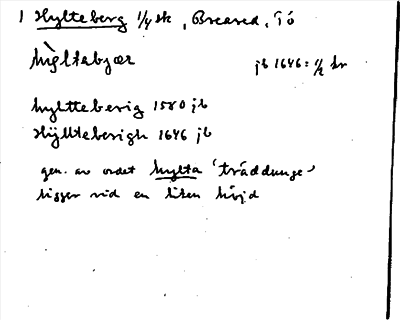 1 Hylteberg 1/4 sk, Breared, Tö
hỳltabjær jb 1646: 1/2 kr
hyltteberig 1580 jb
Hÿllteberigh 1646 jb
gen. av ordet hylta 'träddunge'
ligger vid en liten höjd